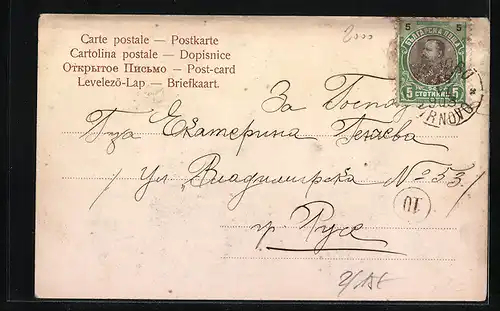 Carte postale — Postkarte
Cartolina postale — Dopisnice
Открытое Письмо — Post-card
Levelező-Lap — Briefkaart.
2000
5 БЪЛГАРСКА ПОЩА 5
5 СТОТИНКИ 5
TRNOVO
За Госпо
Гца Екатерина Генчева
ул. "Владимирска № 53.
10
гр. Русе